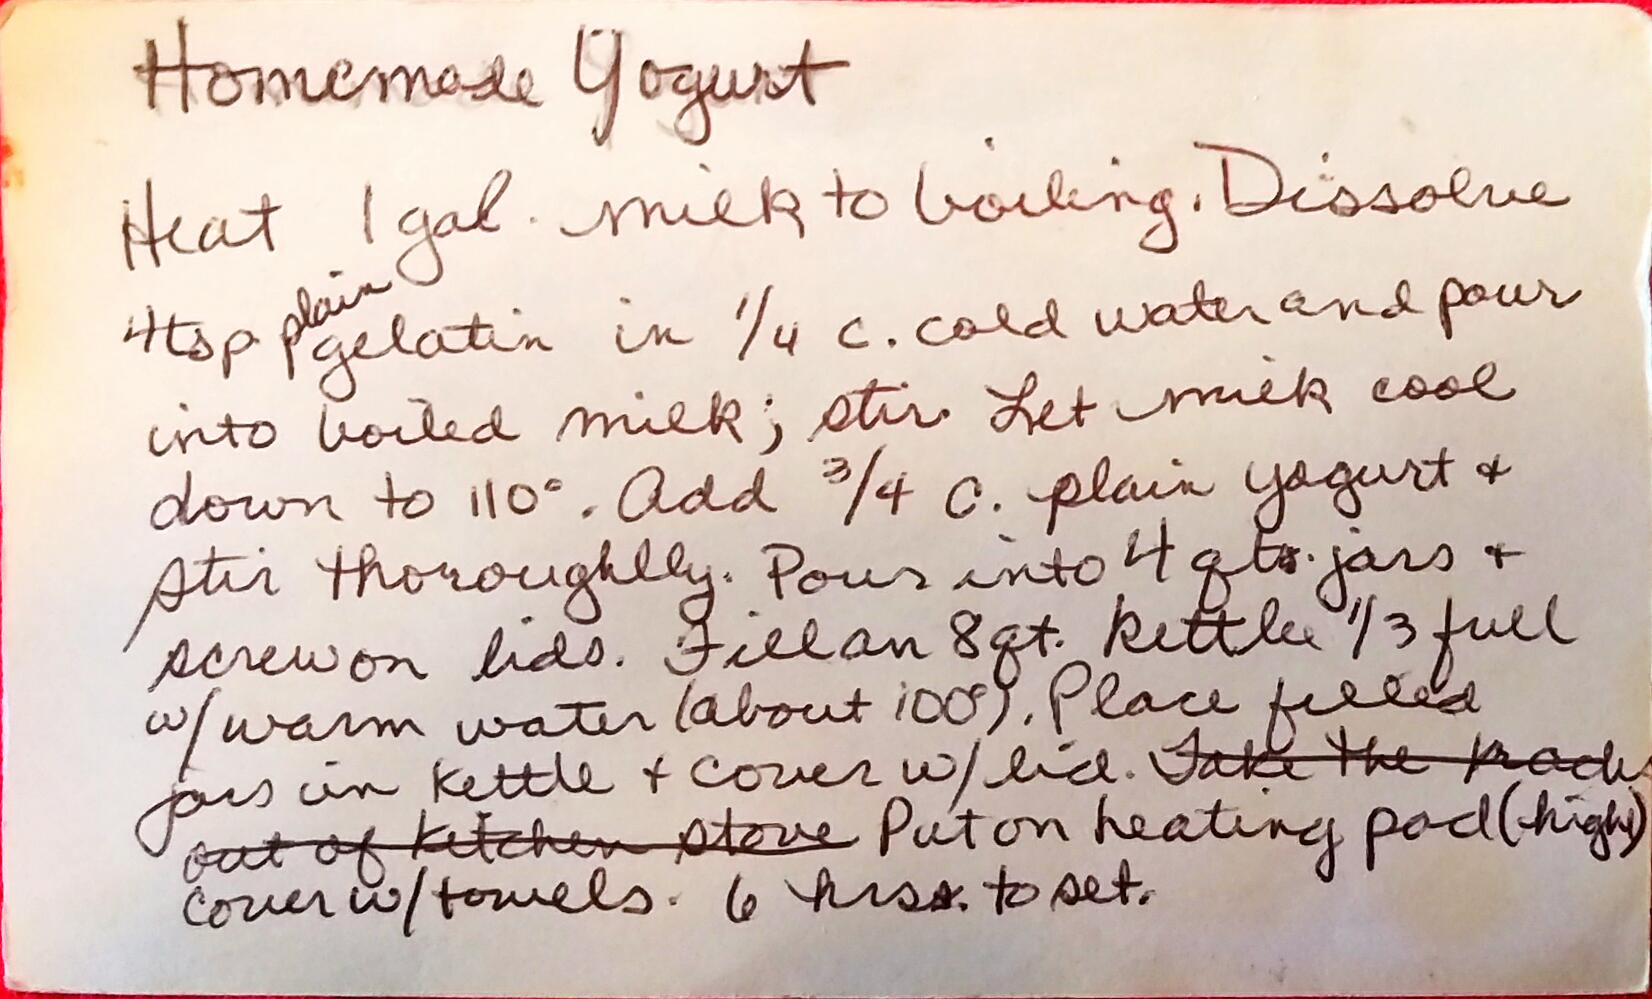 Homemade Yogurt
Heat 1 gal. milk to boiling. Dissolve
4 tsp. plain gelatin in 1/4 c. cold water and pour
into boiled milk; stir. Let milk cool
down to 110°. Add 3/4 c. plain yogurt &
stir thoroughlly. Pour into 4 qts. jars &
screw on lids. Fill an 8 qt. kettle 1/3 full
w/ warm water (about 100°). Place filled
jars in kettle & cover w/ lid. Take the racks
out of kitchen stove Put on heating pad (high)
cover w/ towels. 6 hrs. to set.